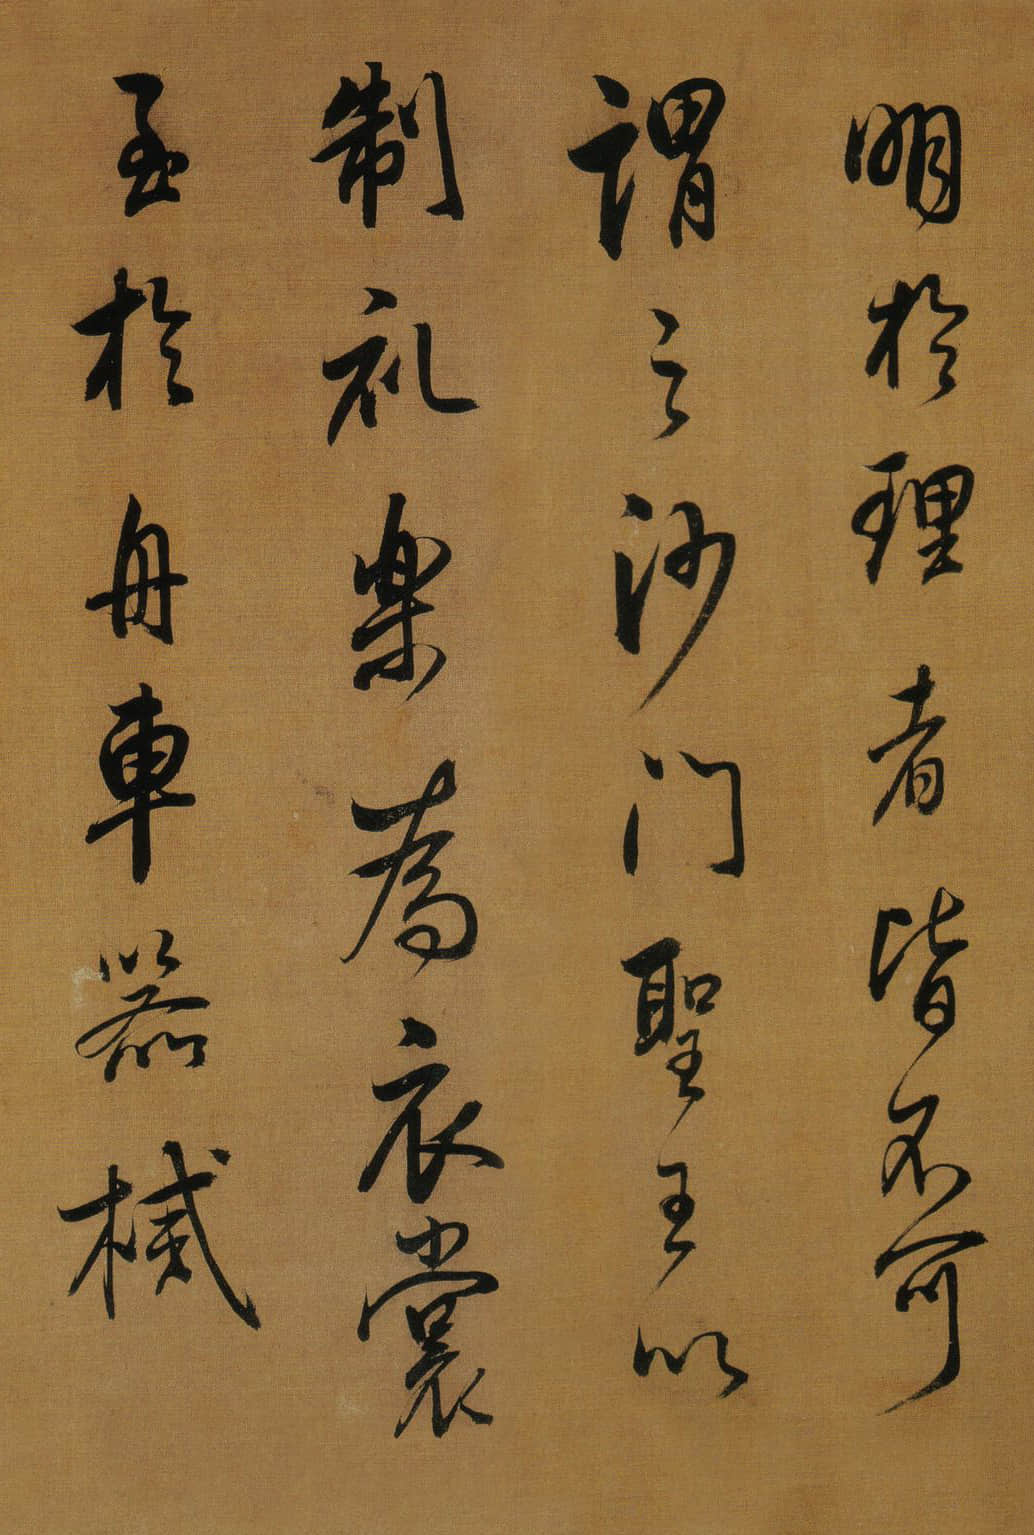 明於理者皆不可
謂之沙门聖王以
制礼樂為衣裳
至於舟車器械